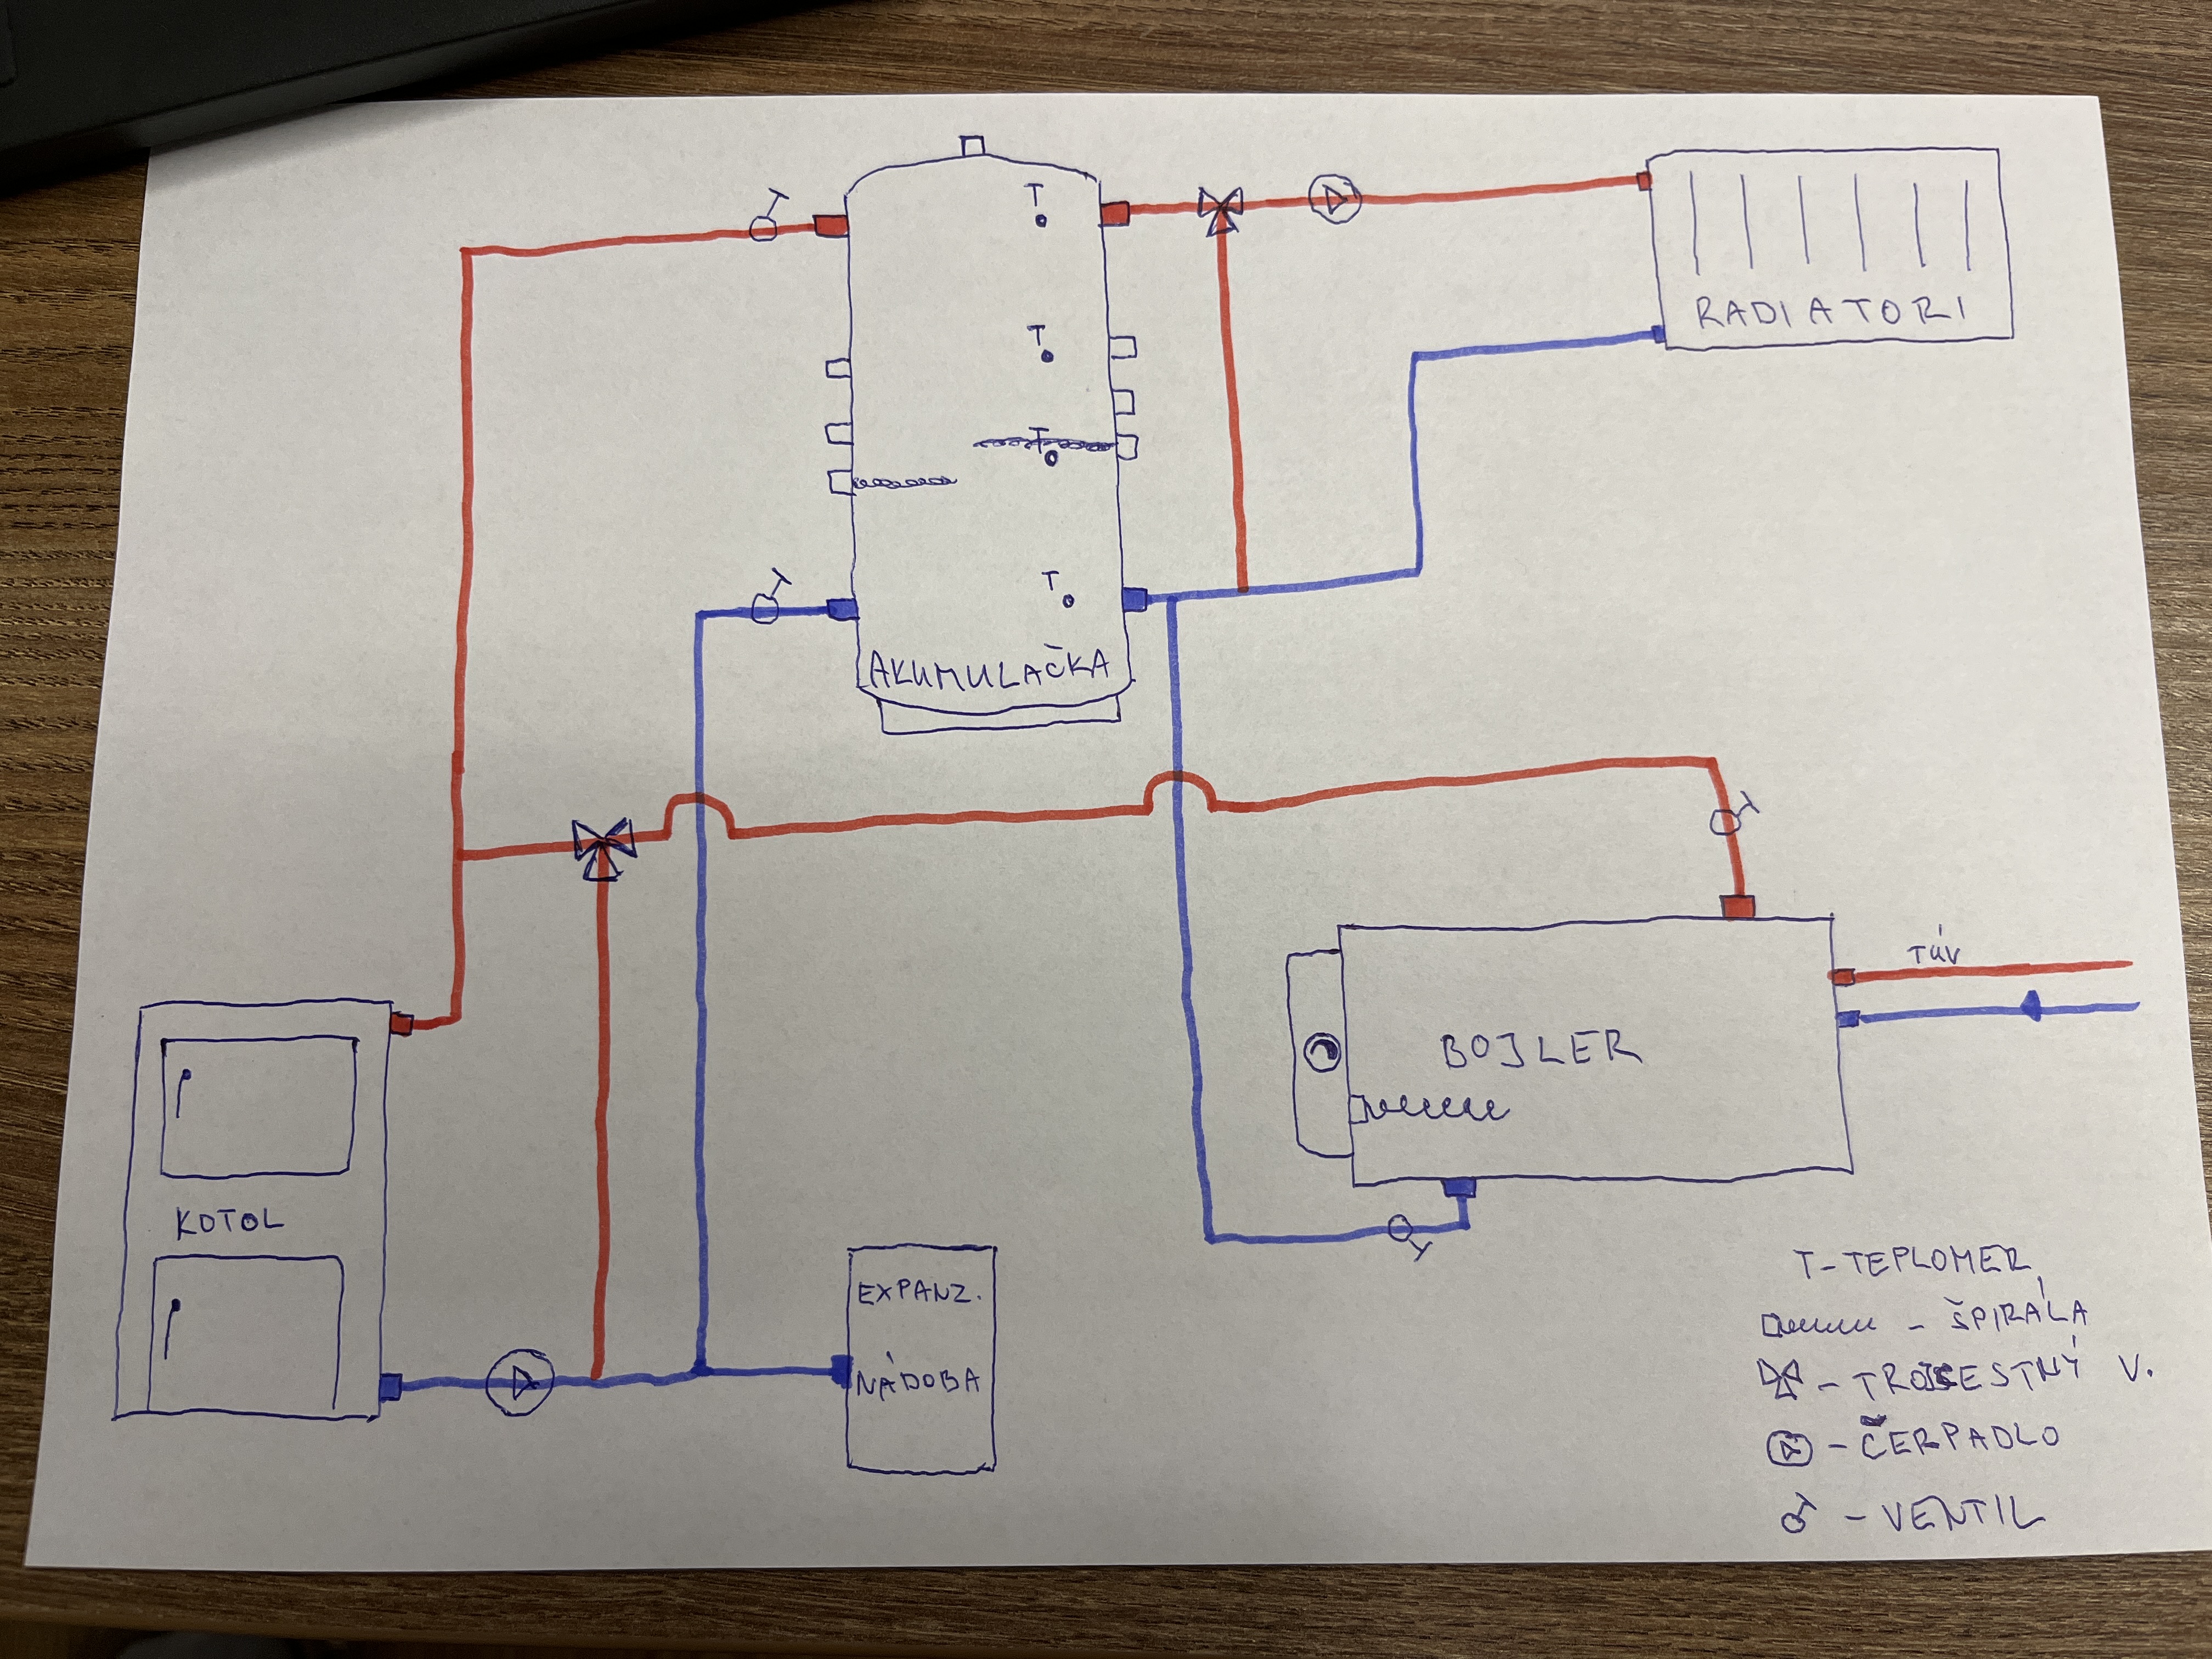 T
RADIATORI
T
T
T
AKUMULAČKA
TÚV
BOJLER
KOTOL
EXPANZ.
NÁDOBA
T - TEPLOMER
- ŠPIRÁLA
- TROJCESTNÝ V.
- ČERPADLO
- VENTIL